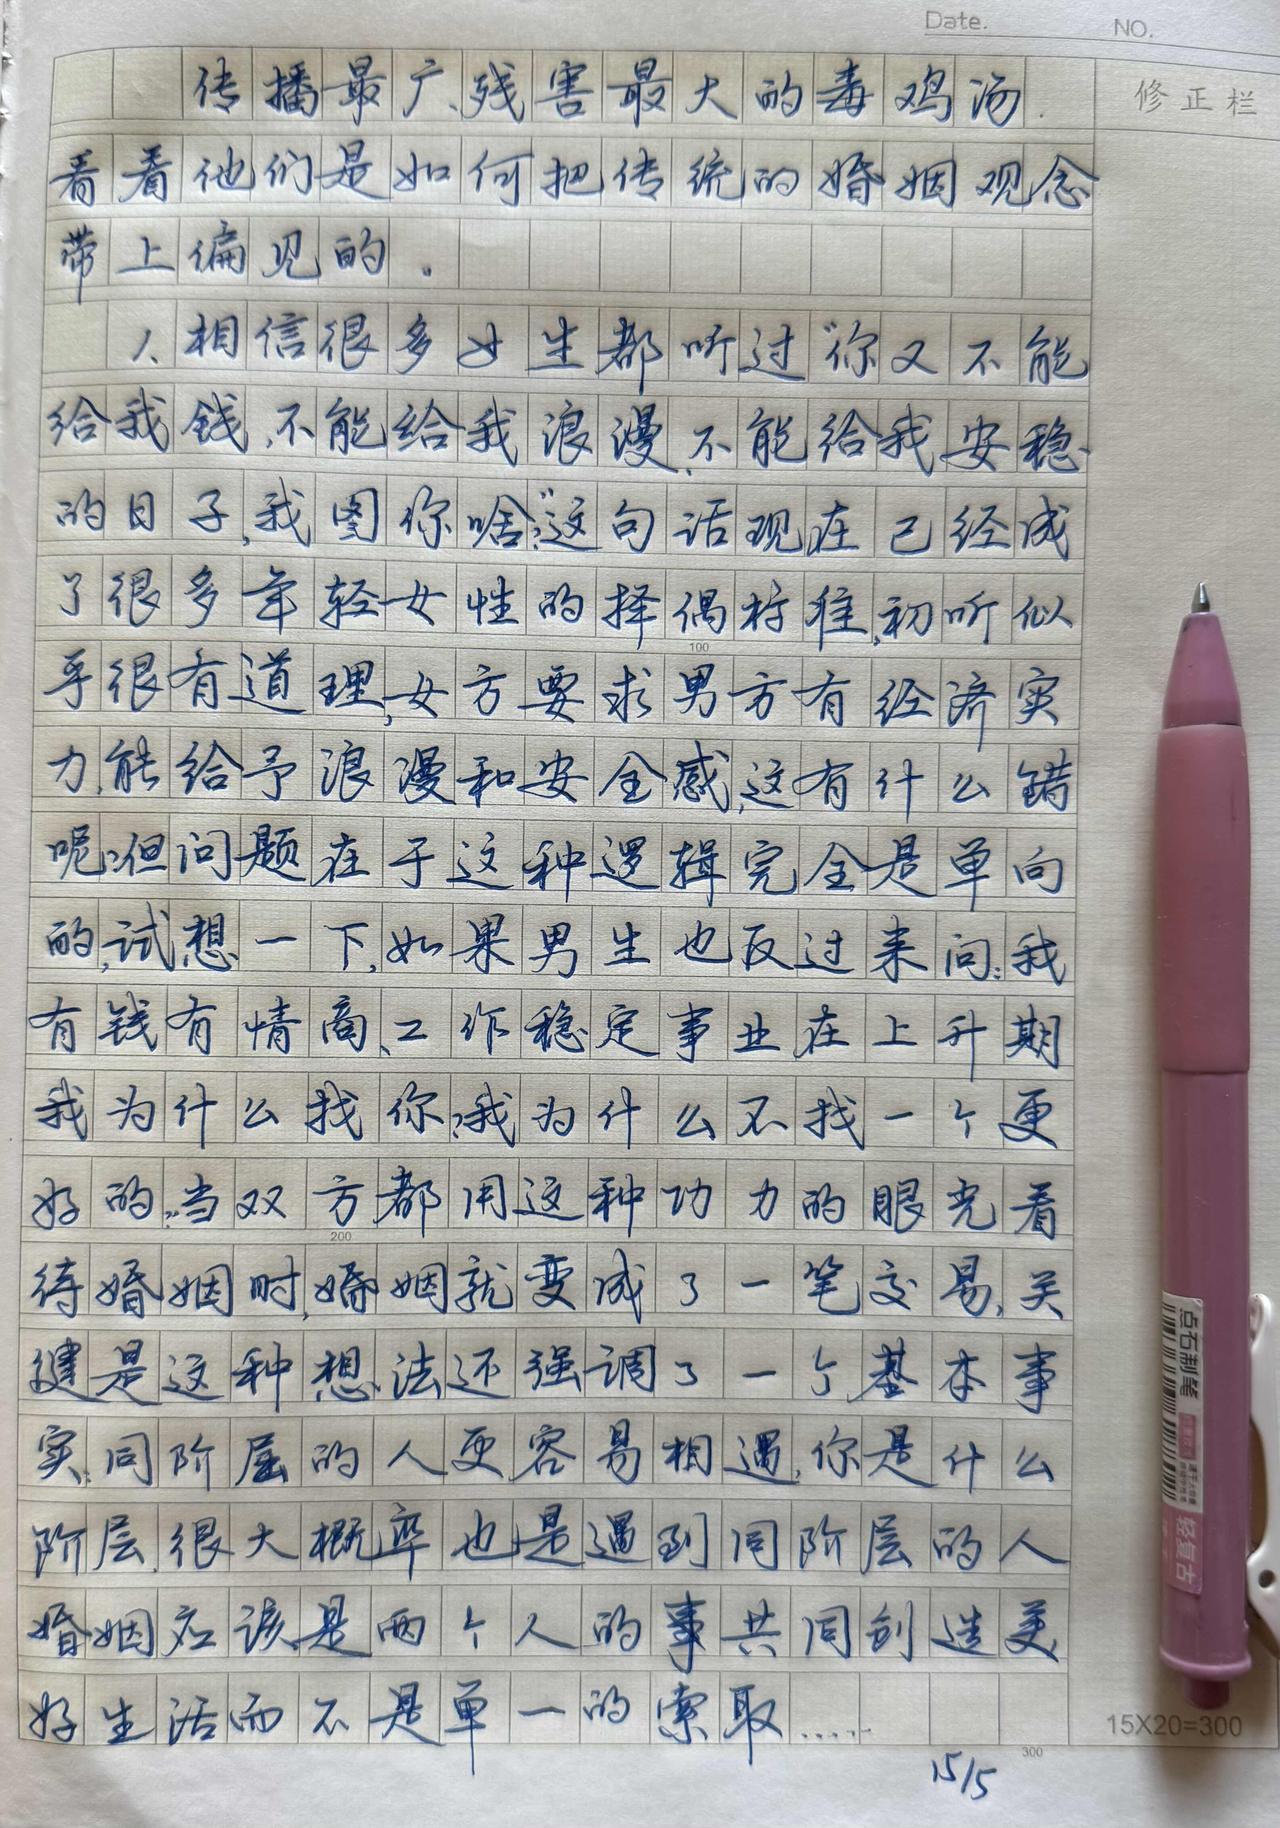 Date.
NO.
修正栏
传播最广、残害最大的毒鸡汤.
看看他们是如何把传统的婚姻观念
带上偏见的.
1、相信很多女生都听过"你又不能
给我钱,不能给我浪漫,不能给我安稳
的日子,我图你啥?"这句话现在已经成
了很多年轻女性的择偶标准,初听似
100
乎很有道理,女方要求男方有经济实
力,能给予浪漫和安全感,这有什么错
呢?但问题在于这种逻辑完全是单向
的,试想一下,如果男生也反过来问:我
有钱有情商、工作稳定事业在上升期
我为什么找你?我为什么不找一个更
好的.当双方都用这种功力的眼光看
200
待婚姻时,婚姻就变成了一笔交易,关
键是这种想法还强调了一个基本事
实:同阶层的人更容易相遇,你是什么
阶层,很大概率也是遇到同阶层的人
婚姻应该是两个人的事共同创造美
好生活而不是单一的索取.....
15X20=300
300
15/5
点石制笔
轻复古